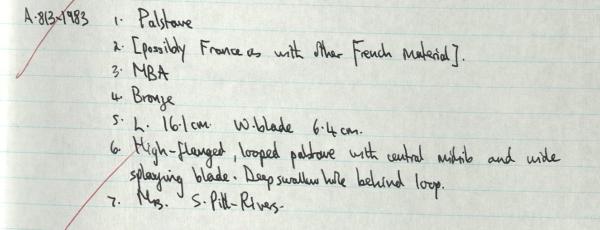 A.813-1983 1. Palstave
2. [possibly France as with other French material].
3. MBA
4. Bronze
5. L. 16.1cm. W.blade 6.4cm.
6. High-flanged, looped palstave with central midrib and wide
splaying blade. Deep swallow hole behind loop.
7. Mrs. S. Pitt-Rivers.